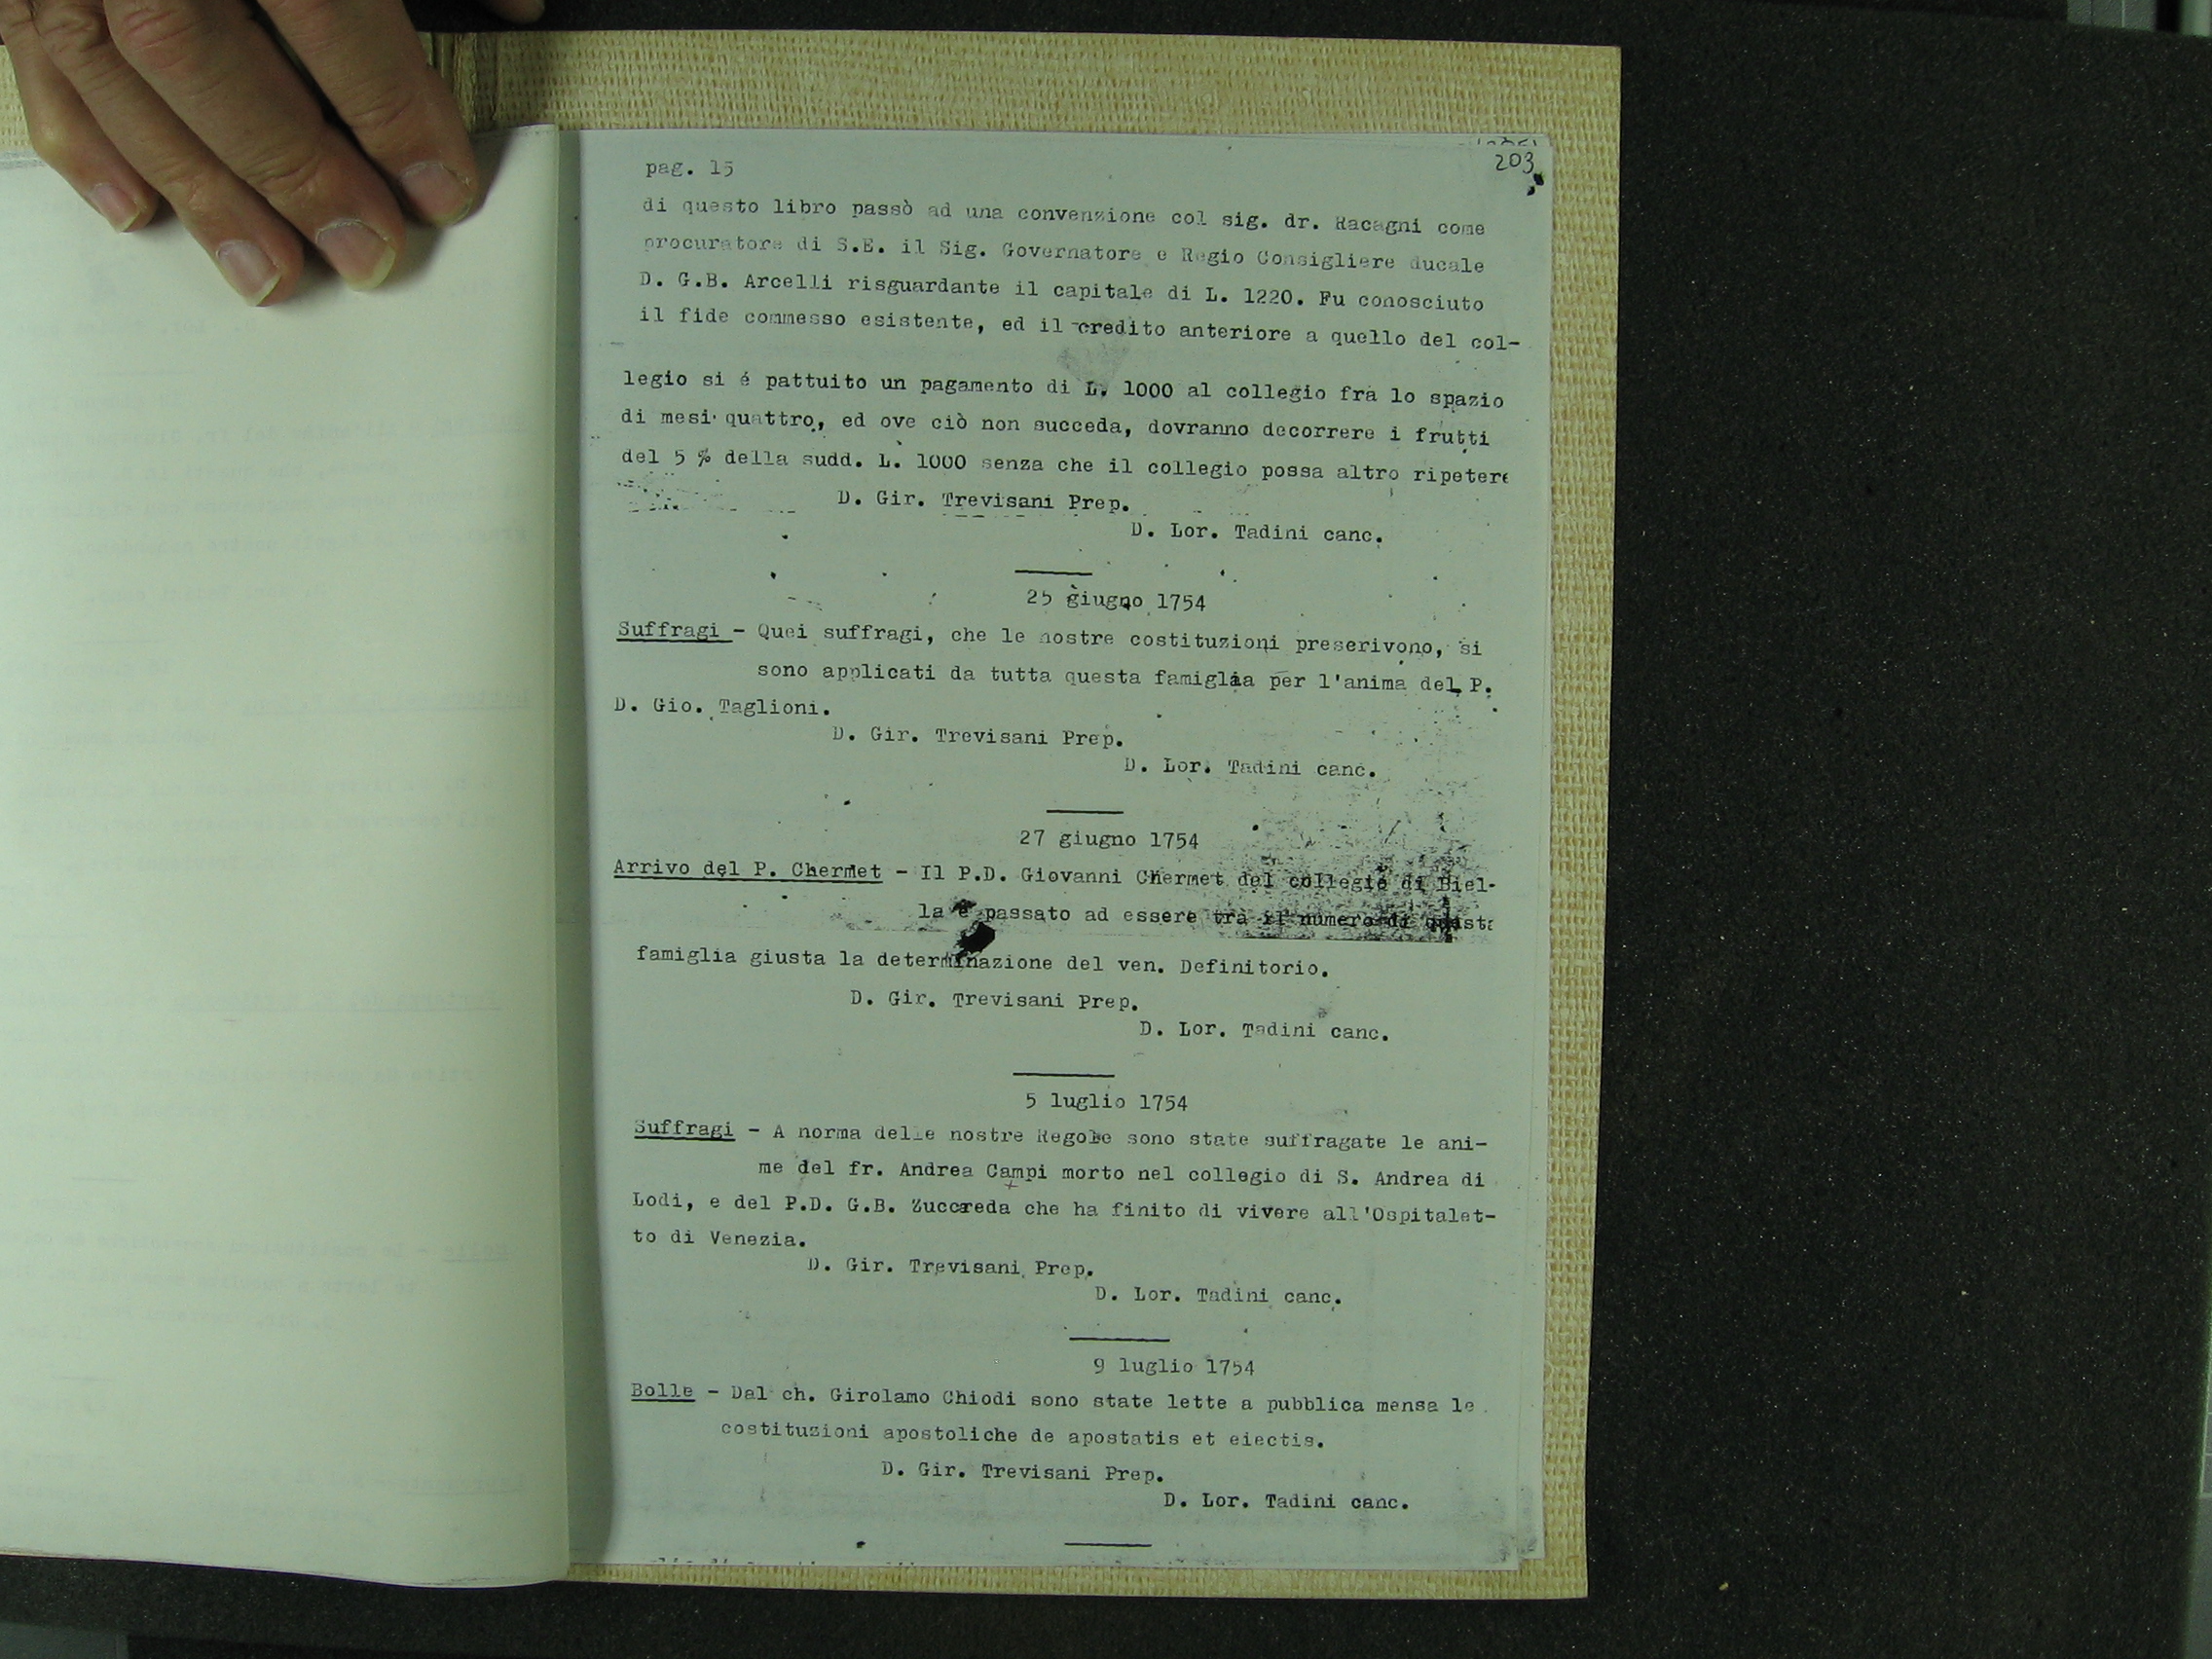 203
pag. 15
di questo libro passò ad una convenzione col sig. dr. Racagni come
procuratore di S.E. il Sig. Governatore e Regio Consigliere ducale
D. G.B. Arcelli risguardante il capitale di L. 1220. Fu conosciuto
il fide commesso esistente, ed il credito anteriore a quello del col-
legio si é pattuito un pagamento di L. 1000 al collegio fra lo spazio
di mesi quattro, ed ove ciò non succeda, dovranno decorrere i frutti
del 5 % della sudd. L. 1000 senza che il collegio possa altro ripetere
D. Gir. Trevisani Prep.
D. Lor. Tadini canc.
25 giugno 1754
Suffragi - Quei suffragi, che le nostre costituzioni preserivono, si
sono applicati da tutta questa famiglia per l'anima del P.
D. Gio. Taglioni.
D. Gir. Trevisani Prep.
D. Lor. Tadini canc.
27 giugno 1754
Arrivo del P. Chermet - Il P.D. Giovanni Chermet del collegio di Biel-
la é passato ad essere trà il numero di questa
famiglia giusta la determinazione del ven. Definitorio.
D. Gir. Trevisani Prep.
D. Lor. Tadini canc.
5 luglio 1754
Suffragi - A norma delle nostre Regole sono state suffragate le ani-
me del fr. Andrea Campi morto nel collegio di S. Andrea di
Lodi, e del P.D. G.B. Zuccareda che ha finito di vivere all'Ospitalet-
to di Venezia.
D. Gir. Trevisani Prep.
D. Lor. Tadini canc.
9 luglio 1754
Bolle - Dal ch. Girolamo Chiodi sono state lette a pubblica mensa le
costituzioni apostoliche de apostatis et eiectis.
D. Gir. Trevisani Prep.
D. Lor. Tadini canc.